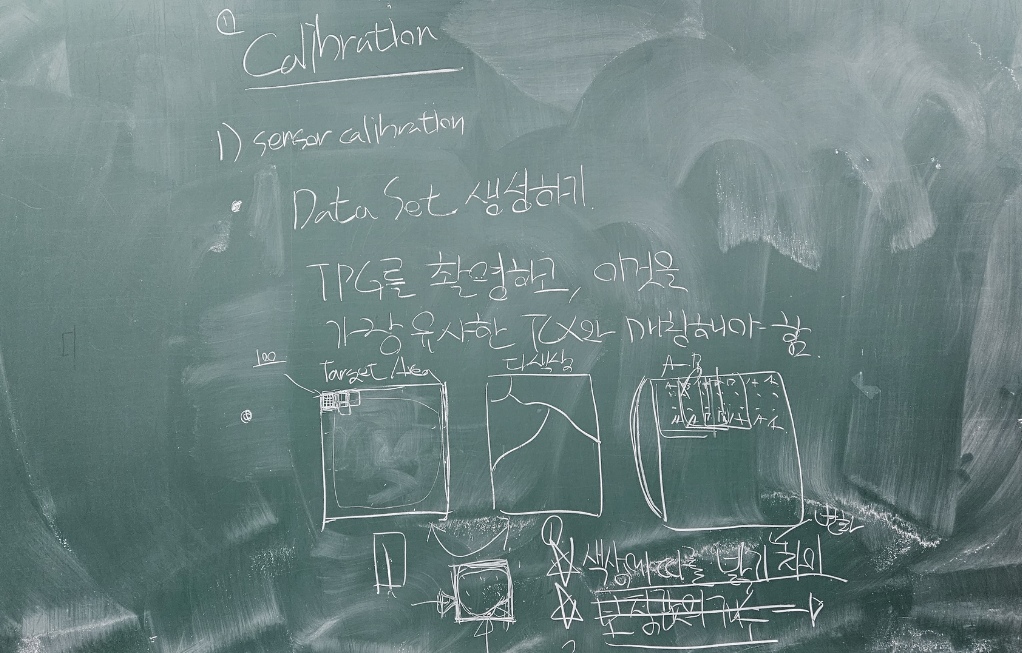 ① Calibration
1) sensor calibration
Data Set 생성하기.
TPG를 촬영하고, 이것을
가장 유사한 TCX와 매칭해야 함.
100
Target Area
다색상
A-B
색상에 따른 밝기 차이